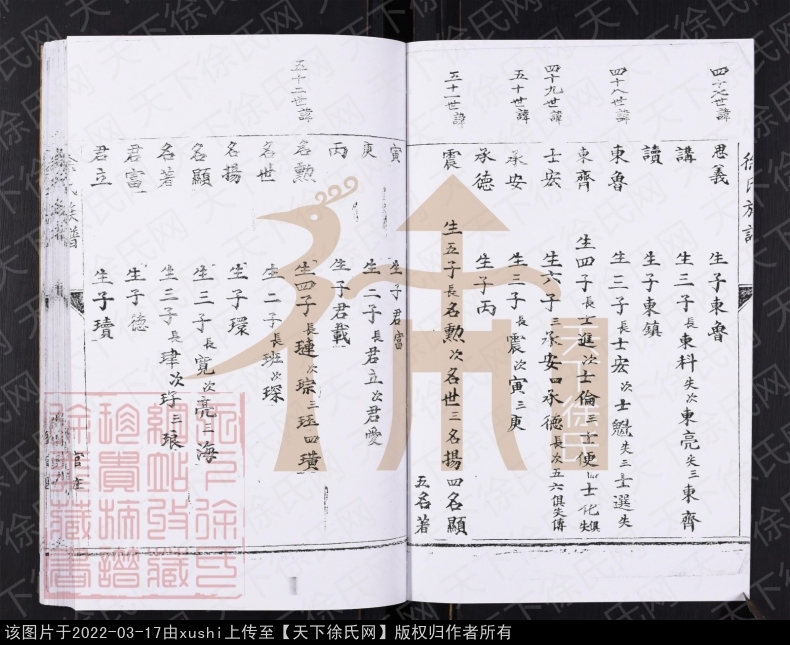 徐氏族譜
四十七世諱
思義 生子東魯
講 生三子長東科失次東亮失三東齊
讀 生子東鎮
四十八世諱
東魯 生三子長士宏次士魁失三士選失
東齊 生四子長士進次士倫三士便四士化俱失
四十九世諱
士宏 生六子三承安四承德長次五六俱失傳
五十世諱
承安 生三子長震次寅三庚
承德 生子丙
五十一世諱
震 生五子長名勲次名世三名揚四名顯
五名著
寅 生子君富
庚 生二子長君立次君愛
丙 生子君載
五十二世諱
名勲 生四子長璉次琮三珏四璜
名世 生二子長班次琛
名揚 生子環
名顯 生三子長寬次亮三海
名著 生三子長瑋次琈三琅
君富 生子德
君立 生子瓚
徐氏族譜
天下徐氏
该图片于2022-03-17由xushi上传至【天下徐氏网】版权归作者所有